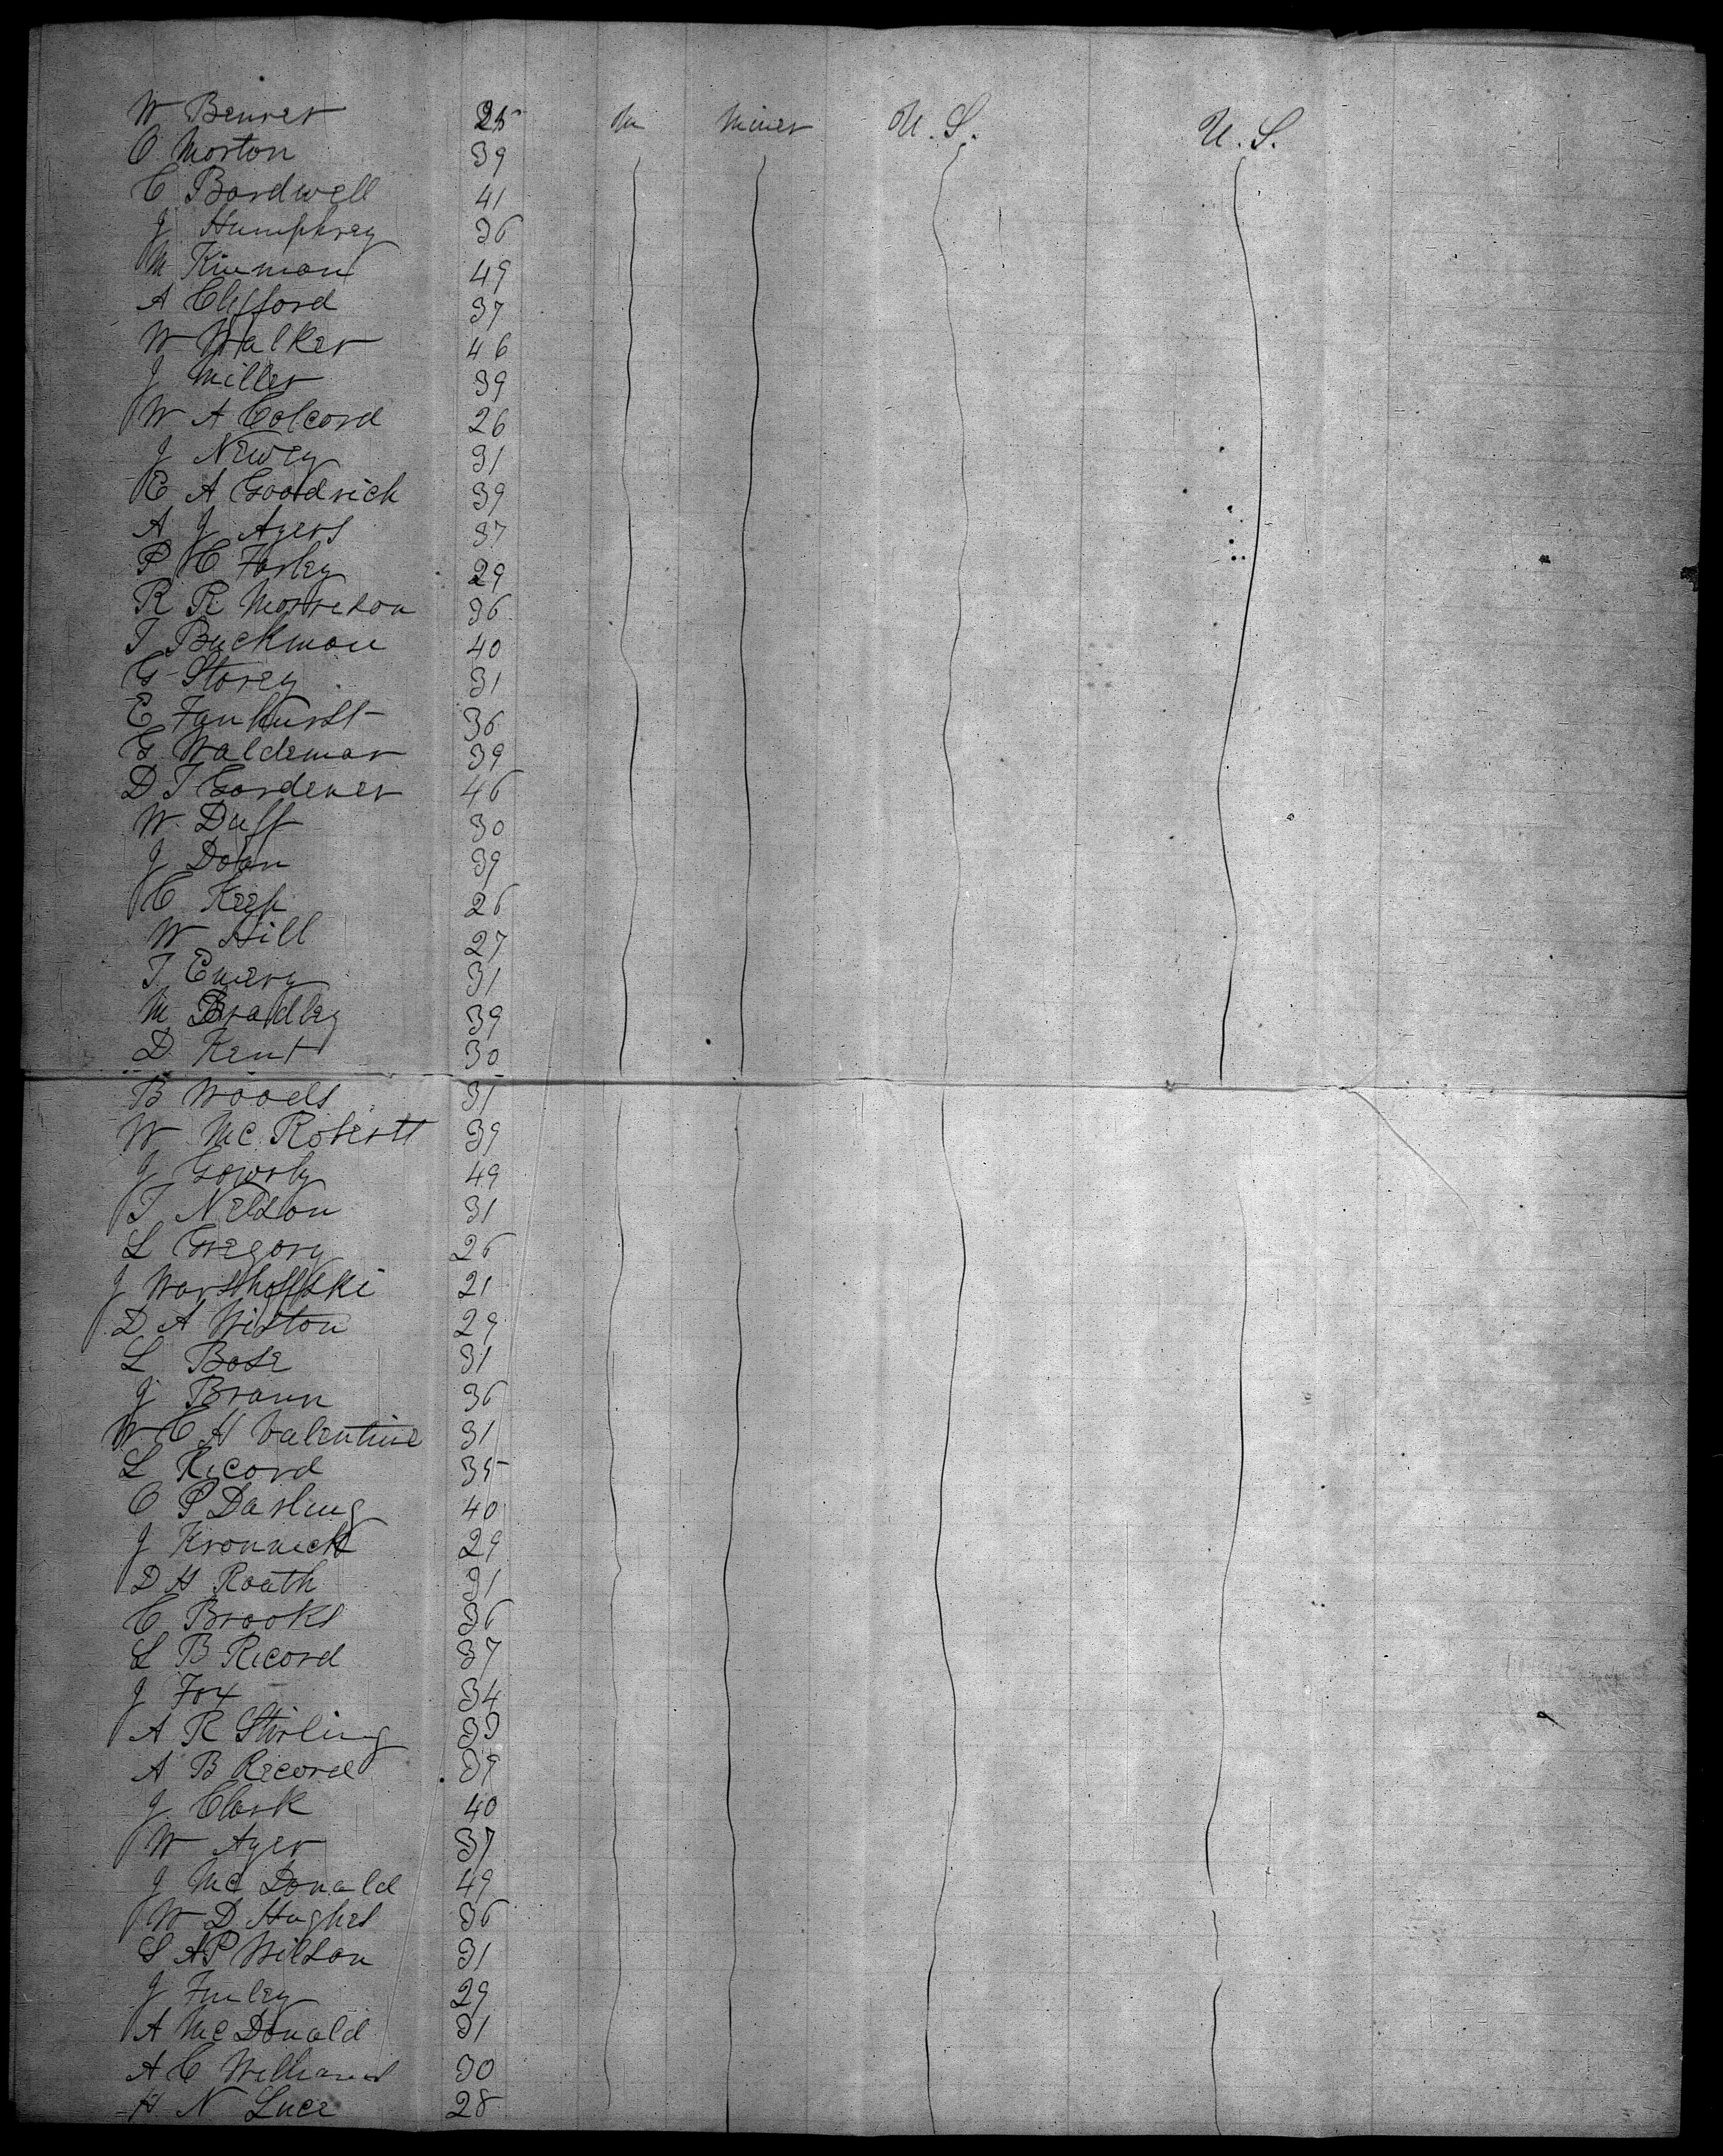 W Benner 25 m miner U.S. U.S.
O Morton 39
C Bardwell 41
J Humphrey 36
M Kinman 49
A Clifford 37
W Walker 46
J Miller 39
W A Colcord 26
J Newey 31
E A Goodrich 39
A J Ayers 37
P C Farley 29
R R Morrison 36
T Buckman 40
G Storey 31
E Fankurst 36
G Waldemar 39
D T Gardener 46
W Duff 30
J Dolan 39
C Keep 26
W Hill 27
T Emery 31
M Bradley 39
D Kent 30
B Woods 31
W Mc Roberts 39
J 49
T Nelson 31
L Gregory 26
J 21
D A Wilson 29
L Bose 31
J Braun 36
W C H Valentine 31
L Record 35
O P Darling 40
J 29
D H Routh 31
C Brooks 36
L B Record 37
J Fox 34
A R Stirling 33
A B Record 39
J Clark 40
W Ayer 37
J Mc Donald 49
W D Hughes 36
S A P Wilson 31
J Finley 29
A Mc Donald 31
A C Williams 30
H N Luce 28